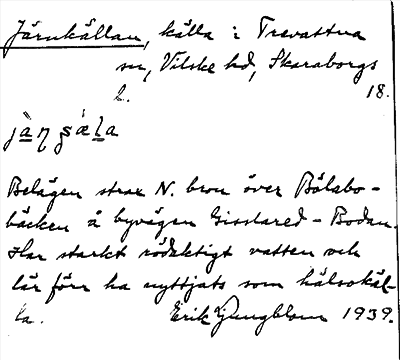 Järnkällan, källa i Trevattna
sn, Vilske hd, Skaraborgs
l. 18.
jàŋɕæ̀la
Belägen strax N. bron över Bölabo-
bäcken å byvägen Gisslared - Bodan.
Har starkt rödaktigt vatten och
lär förr ha nyttjats som hälsokäl-
la. Erik Ljungblom 1939.